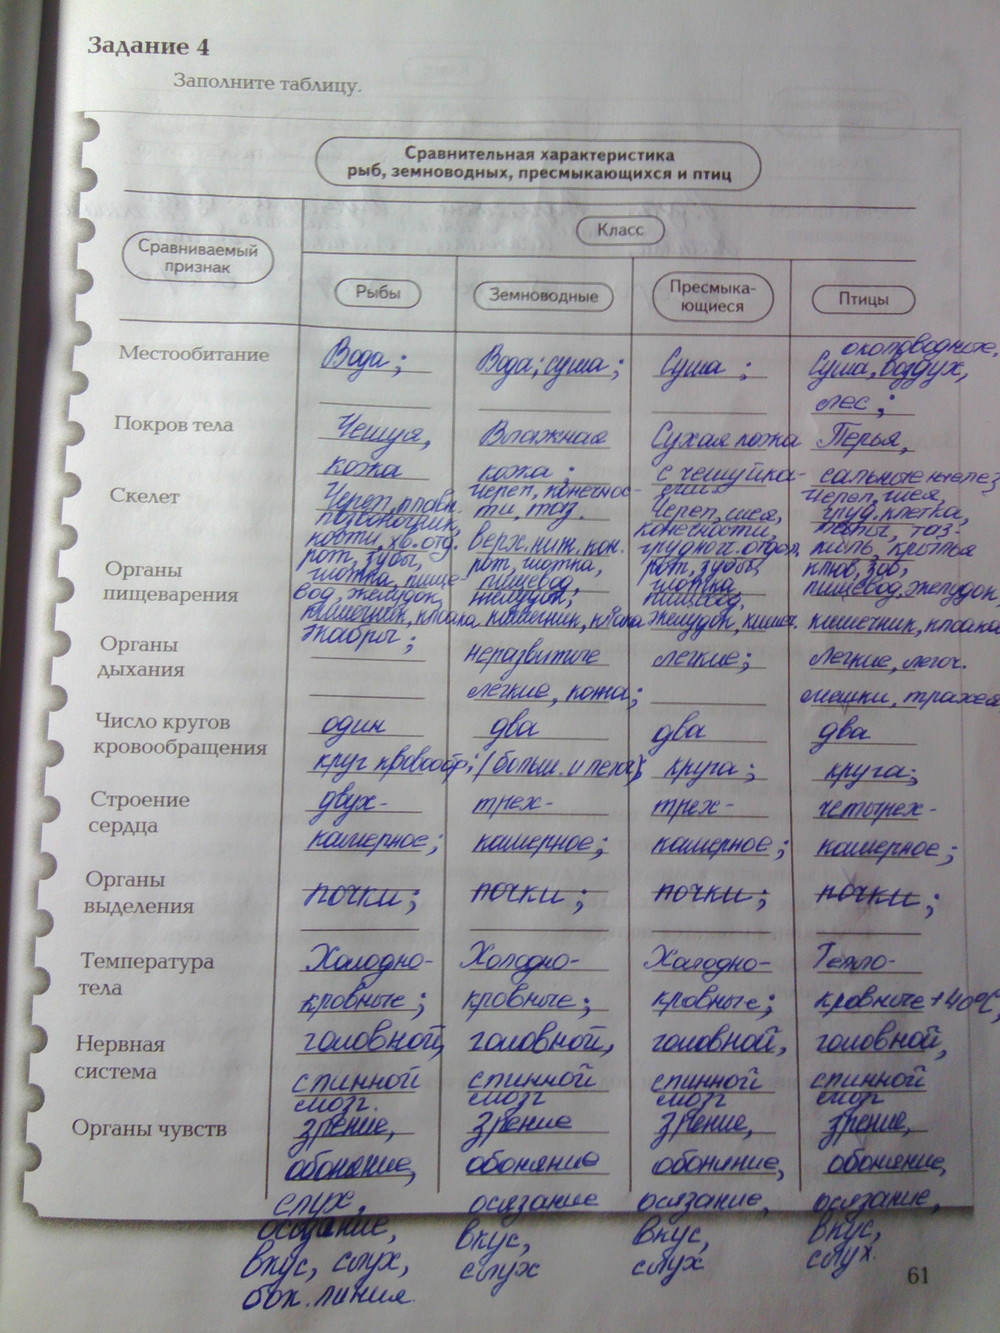 Задание 4
Заполните таблицу.
Сравнительная характеристика
рыб, земноводных, пресмыкающихся и птиц
Сравниваемый
признак
Класс
Рыбы
Земноводные
Пресмыка-
ющиеся
Птицы
Местообитание
Вода;
Вода; суша;
Суша ;
околоводные,
Суша, воздух,
лес ;
Покров тела
Чешуя,
кожа
Влажная
кожа ;
Сухая кожа
с чешуйка-
ми
Перья,
сальные желез
Скелет
Череп, плавн.
позвоночник,
кости, хв. отд.
Череп, конечнос-
ти, таз.
верх. ниж. кон.
Череп, шея,
конечности,
грудной. отдел,
Череп, шея,
груд. клетка,
таз-
киль, крылья
Органы
пищеварения
рот, зубы,
глотка, пище-
вод, желудок,
кишечник, клоака
рот, глотка,
пищевод,
желудок,
кишечник, клоака
рот, зубы,
глотка,
пищевод,
желудок, кишеч.
клюв, зоб,
пищевод, желудок
кишечник, клоака
Органы
дыхания
жабры ;
неразвитые
легкие, кожа;
легкие;
легкие, легоч.
мешки, трахея
Число кругов
кровообращения
один
круг кровообр;
два
(больш. и легоч);
два
круга ;
два
круга;
Строение
сердца
двух-
камерное;
трех-
камерное;
трех-
камерное ;
четырех-
камерное;
Органы
выделения
почки;
почки ;
почки;
почки ;
Температура
тела
Холодно-
кровные ;
Холодно-
кровные;
Холодно-
кровные;
Тепло-
кровные +40°С,
Нервная
система
головной,
спинной
мозг.
головной,
спинной
мозг
головной,
спинной
мозг
головной,
спинной
мозг
Органы чувств
зрение,
обоняние,
слух,
осязание,
вкус, слух,
бок. линия.
зрение
обоняние
осязание
вкус,
слух
зрение,
обоняние,
осязание,
вкус,
слух
зрение,
обоняние,
осязание,
вкус,
слух.
61